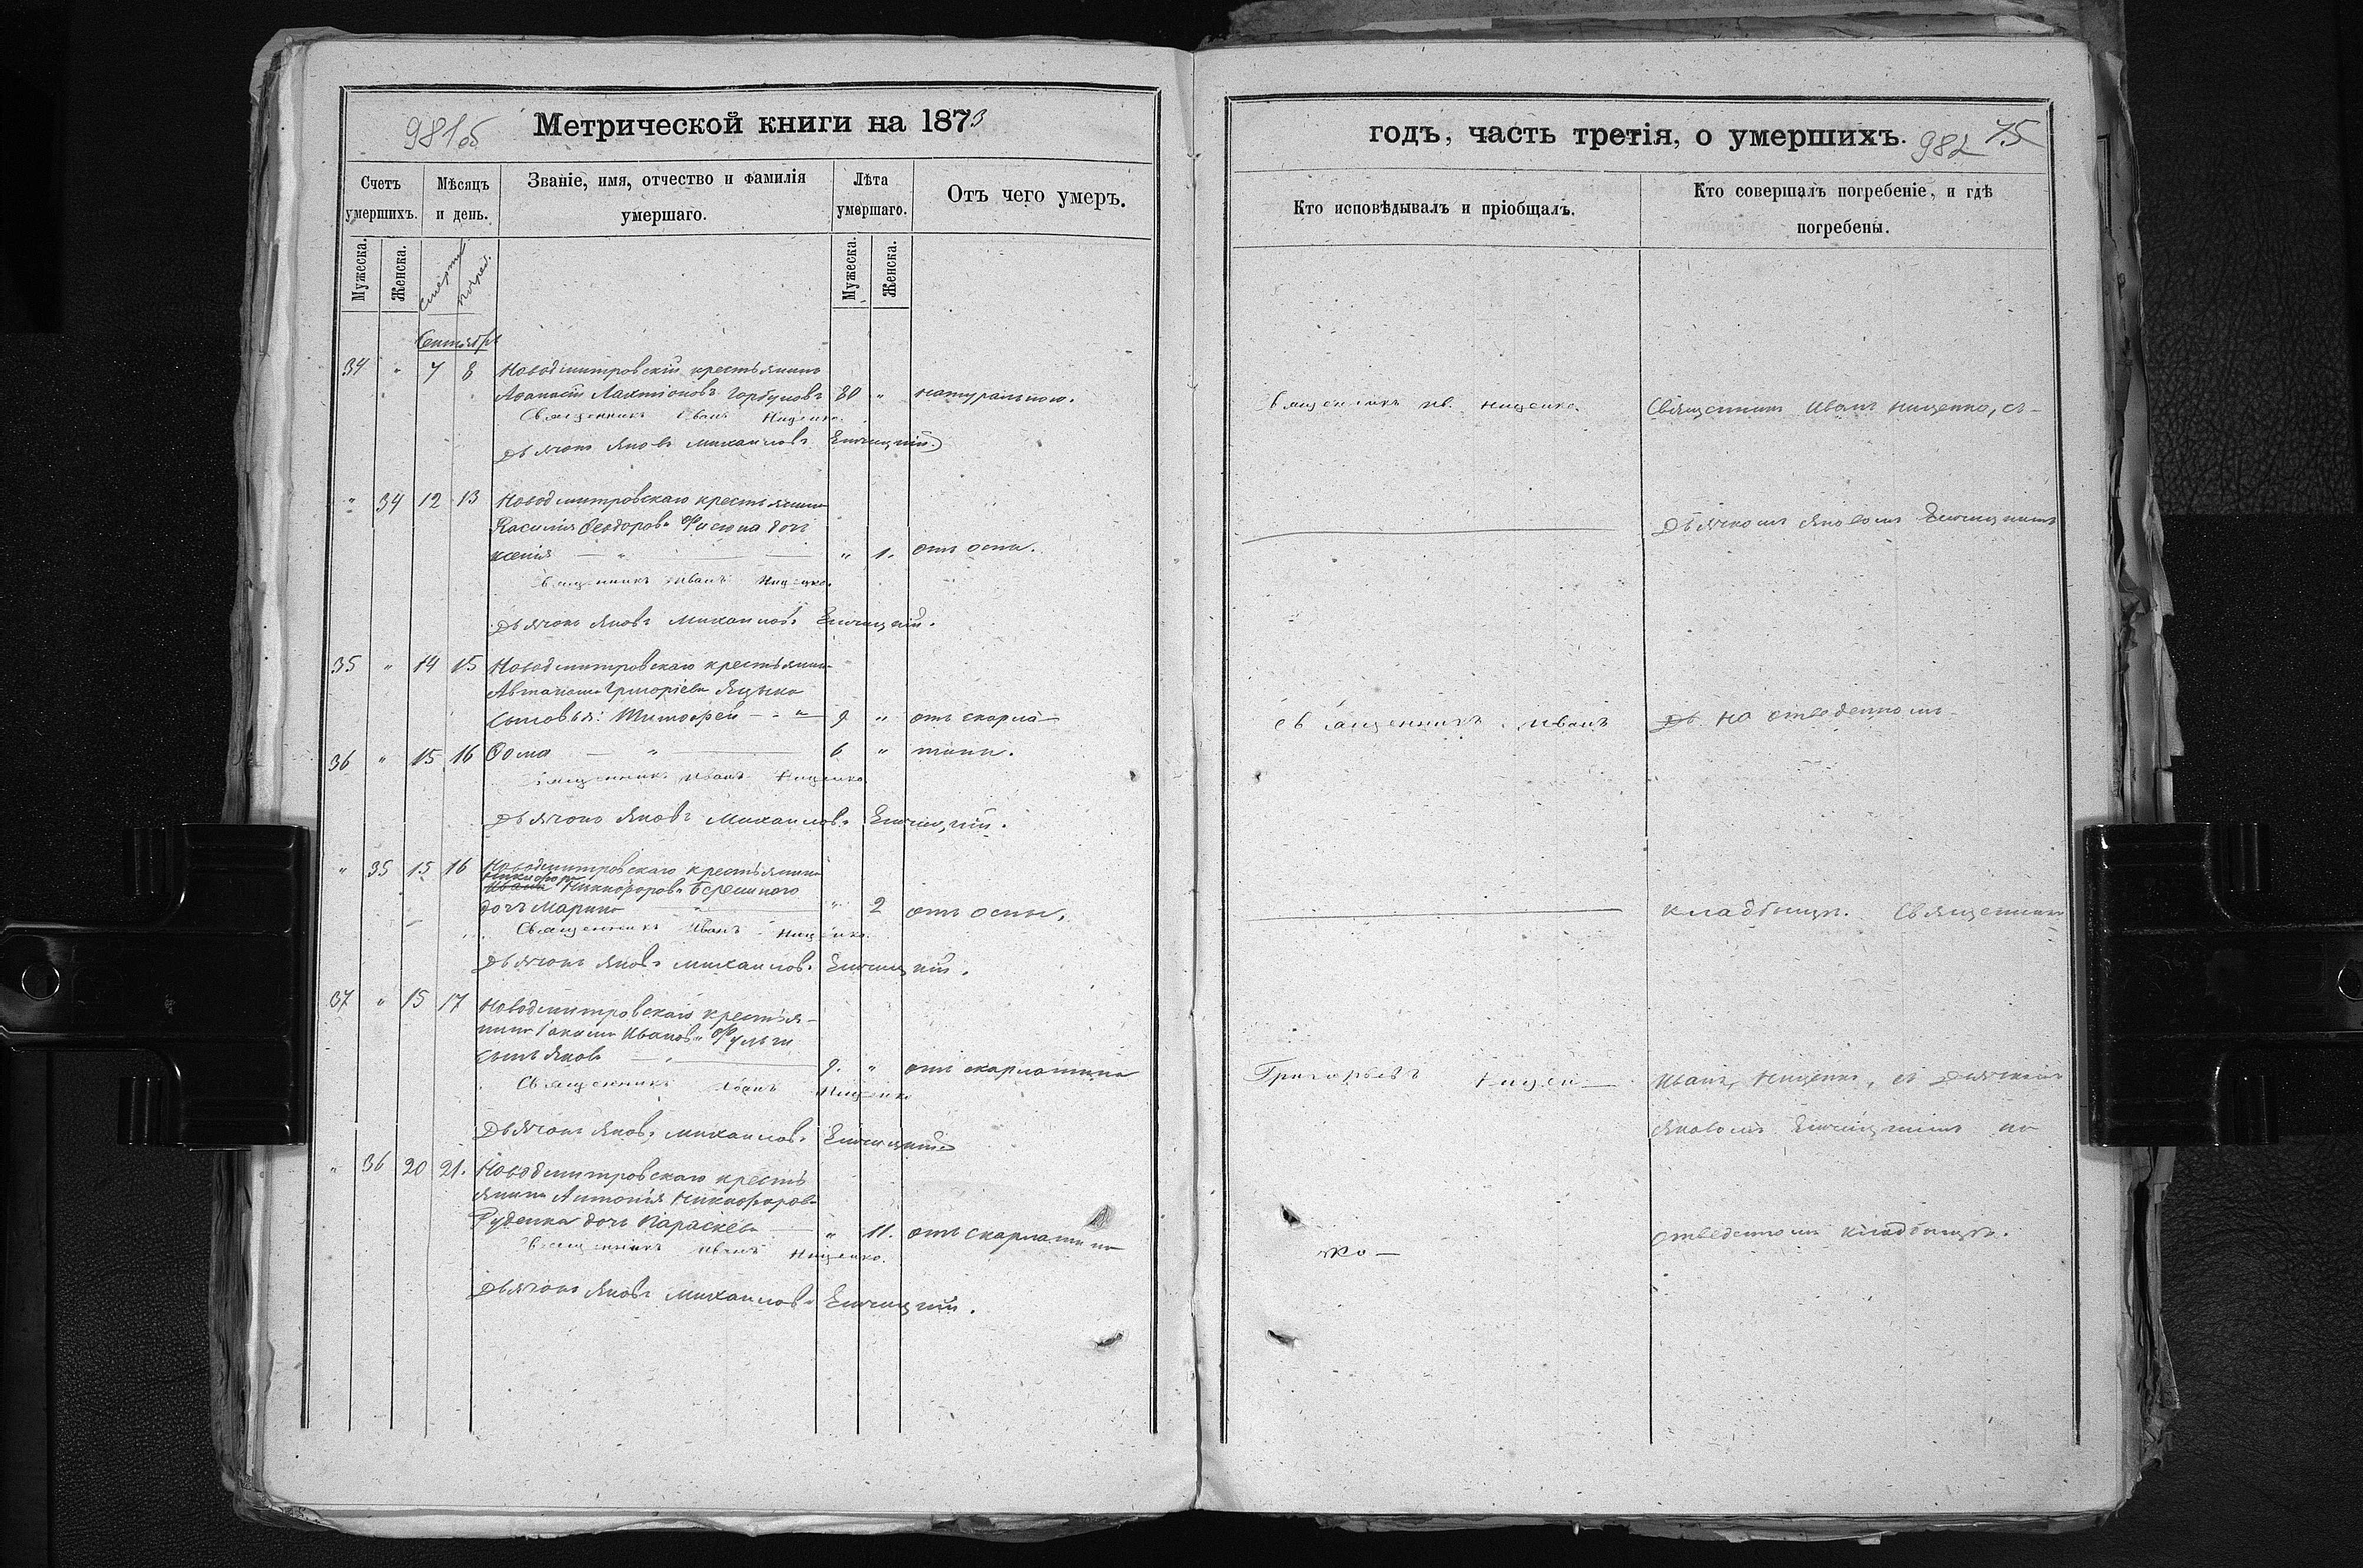 981об
Метрической книги на 1873
Счетъ умершихъ.
Мѣсяцъ и день.
Званіе, имя, отчество и фамилія умершаго.
Лѣта умершаго.
Отъ чего умеръ.
Мужеска.
Женска.
смерти
погреб.
Мужеска.
Женска.
Сентябрь
34 " 7 8 Новодмитровскій крестьянинъ
Афанасій Лактіоновъ Горбуновъ 80 " натурально.
Священникъ Иванъ Нищенко.
Дьячокъ Яковъ Михаиловъ
" 34 12 13 Новодмитровскаго крестьянина
Василія Феодорова дочь
Ксенія — " — " 1. отъ оспы.
Священникъ Иванъ Нищенко.
Дьячокъ Яковъ Михаиловъ
35 " 14 15 Новодмитровскаго крестьянина
Григоріева Яцыка
сыновья: Тимофей — " — 9 " отъ скарла-
36 " 15 16 Фома — " — 6 " тины.
Священникъ Иванъ Нищенко
Дьячокъ Яковъ Михаиловъ
" 35 15 16 Новодмитровскаго крестьянина
Никифорова
дочь Марина " 2 отъ оспы.
Священникъ Иванъ Нищенко.
Дьячокъ Яковъ Михаиловъ
37 " 15 17 Новодмитровскаго крестья-
нина Іакима Иванова
сынъ Яковъ — " — 9. " отъ скарлатины
Священникъ Иванъ Нищенко
Дьячокъ Яковъ Михаиловъ
" 36 20 21. Новодмитровскаго кресть
янина Антонія Никифорова
Руденка дочь Параскева — " 11. отъ скарлатины
Священникъ Иванъ Нищенко.
Дьячокъ Яковъ Михаиловъ
годъ, часть третія, о умершихъ.
982 75
Кто исповѣдывалъ и пріобщалъ.
Кто совершалъ погребеніе, и гдѣ погребены.
Священникъ Ив. Нищенко.
Священникъ Иванъ Нищенко, съ-
Дьячкомъ Яковомъ
Священникъ Иванъ
на отведенномъ
кладбищѣ. Священникъ
Григорьевъ Нищен—
Иванъ Нищенко, съ дьячкомъ
Яковомъ на
отведенномъ кладбищѣ.
ко—